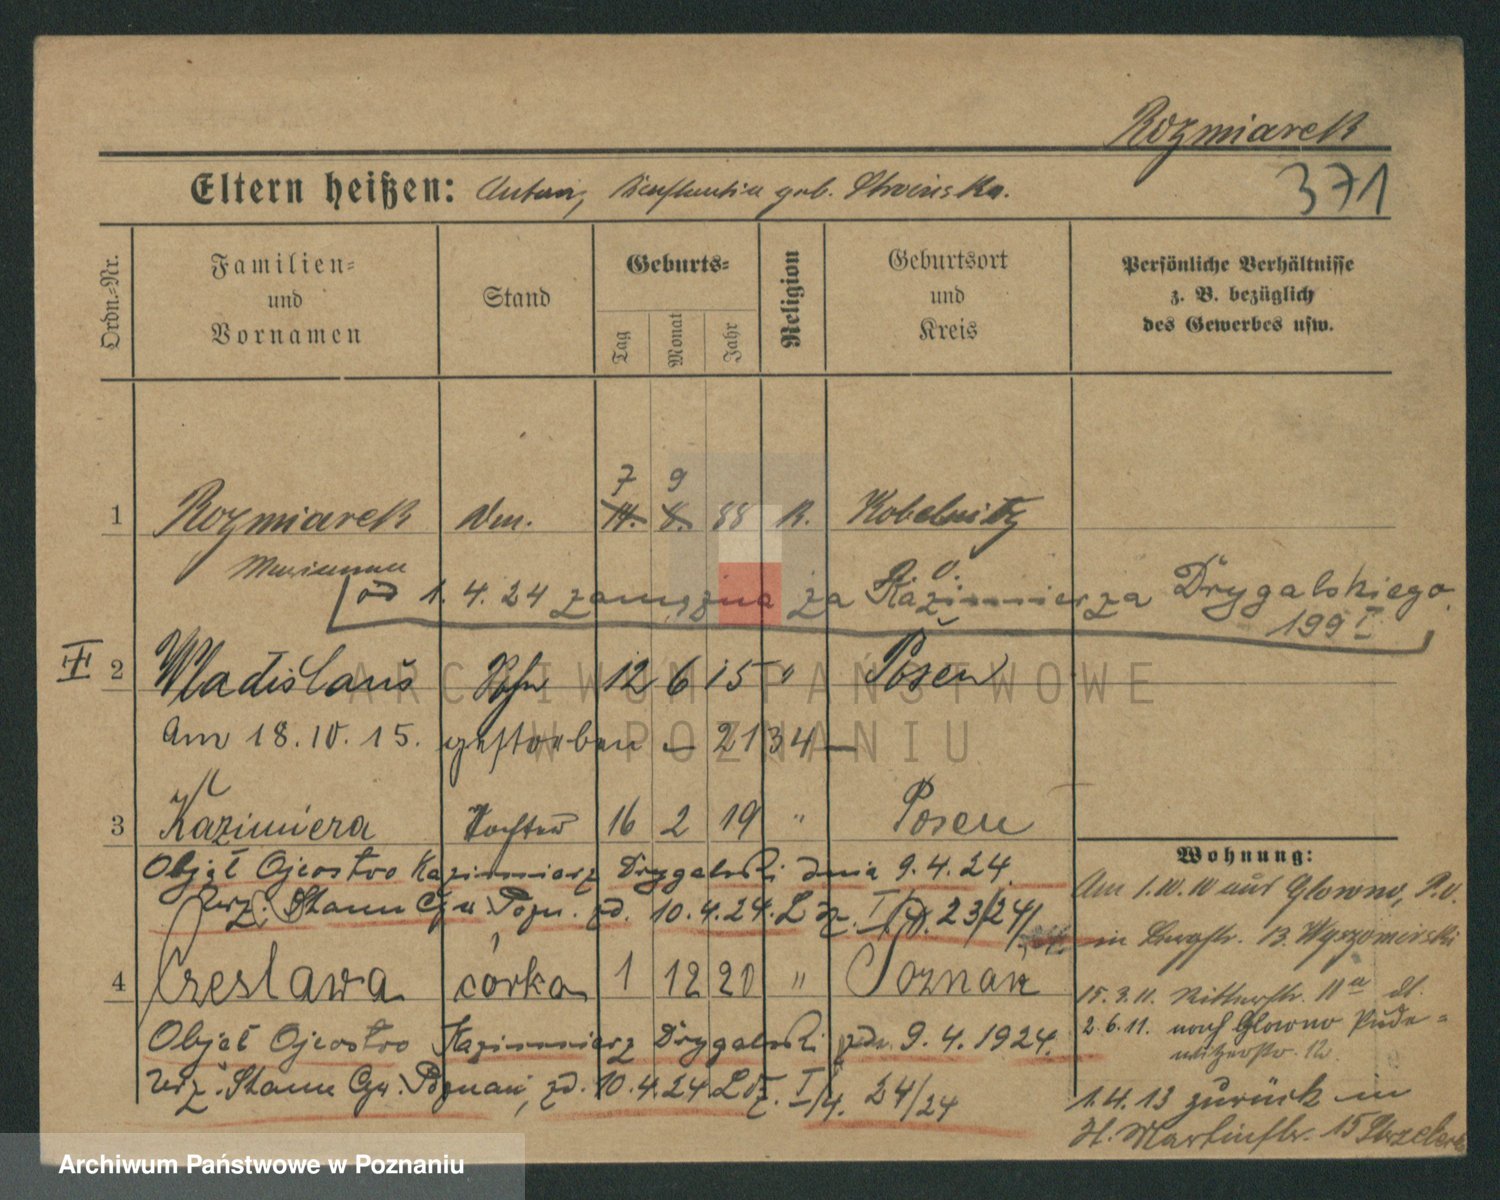 Rozmiarek
371
Eltern heißen: Anton, Konstantia geb. Skoeinska.
Ordn.-Nr.
Familien-
und
Vornamen
Stand
Geburts-
Tag
Monat
Jahr
Religion
Geburtsort
und
Kreis
Persönliche Verhältnisse
z. B. bezüglich
des Gewerbes usw.
7 9
1 Rozmiarek 88 K. Kobelnitz
Marianna
od 1.4.24 zamężna za Kazimierza Drygalskiego
199 I
2 Wladislaus Sohn 12 6 15 " Posen
Am 18.10.15. gestorben – 2134 –
3 Kazimiera Tochter 16 2 19 " Posen
Objął Ojcostwo Kazimierz Drygalski dnia 9.4.24.
Urz. Stanu Cyw. Pozn. zd. 10.4.24. L dz. I/4. 23/24
4 Czesława córka 1 12 20 " Poznań
Objął Ojcostwo Kazimierz Drygalski zdn. 9.4.1924.
Urz. Stanu Cyw. Poznań, zd. 10.4.24 L dz. I/4. 24/24
Wohnung:
Am 1.10.10 aus Glowno, P.O.
in 13. Wyszomirski
15.3.11. Ritterstr. 11a
2.6.11. nach Glowno Pude=
witzerstr. 12.
1.4.13 zurück in
St. Martinstr. 15
ARCHIWUM PAŃSTWOWE
W POZNANIU
Archiwum Państwowe w Poznaniu